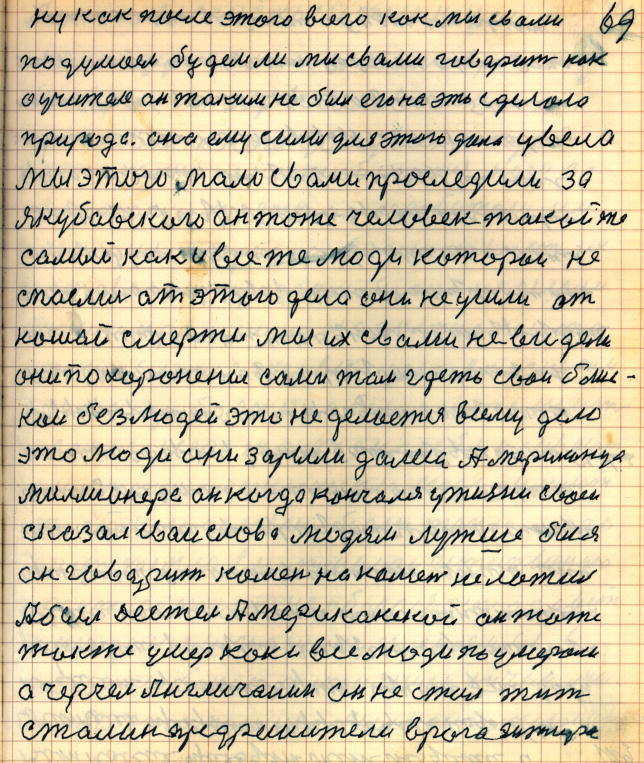 ну как после этого всего как мы свами 69
подумаем будем ли мы свами говарит как
о учителе он таким не был его на эть сделала
природа. она ему силы для этого дала увела
мы этого мало свами проследили за
якубавского он тоже человек такой же
самый как и все же люди которои не
спаслис ат этого дела они не ушли от
ношай смерти мы их свами не видели
они похоронени сами там гдеть свои близ-
кои без людей это не делается всему дело
это люди они зарили далса Американца
миллионера он когда кончался ужизни своеи
сказал сваи слова людям лутше был я
он говарит камен на камен не ложил
А был деятел Американской он тоже
также умер как и все люди по умерали
а черчел Англичанин он не стал жит
сталин врага